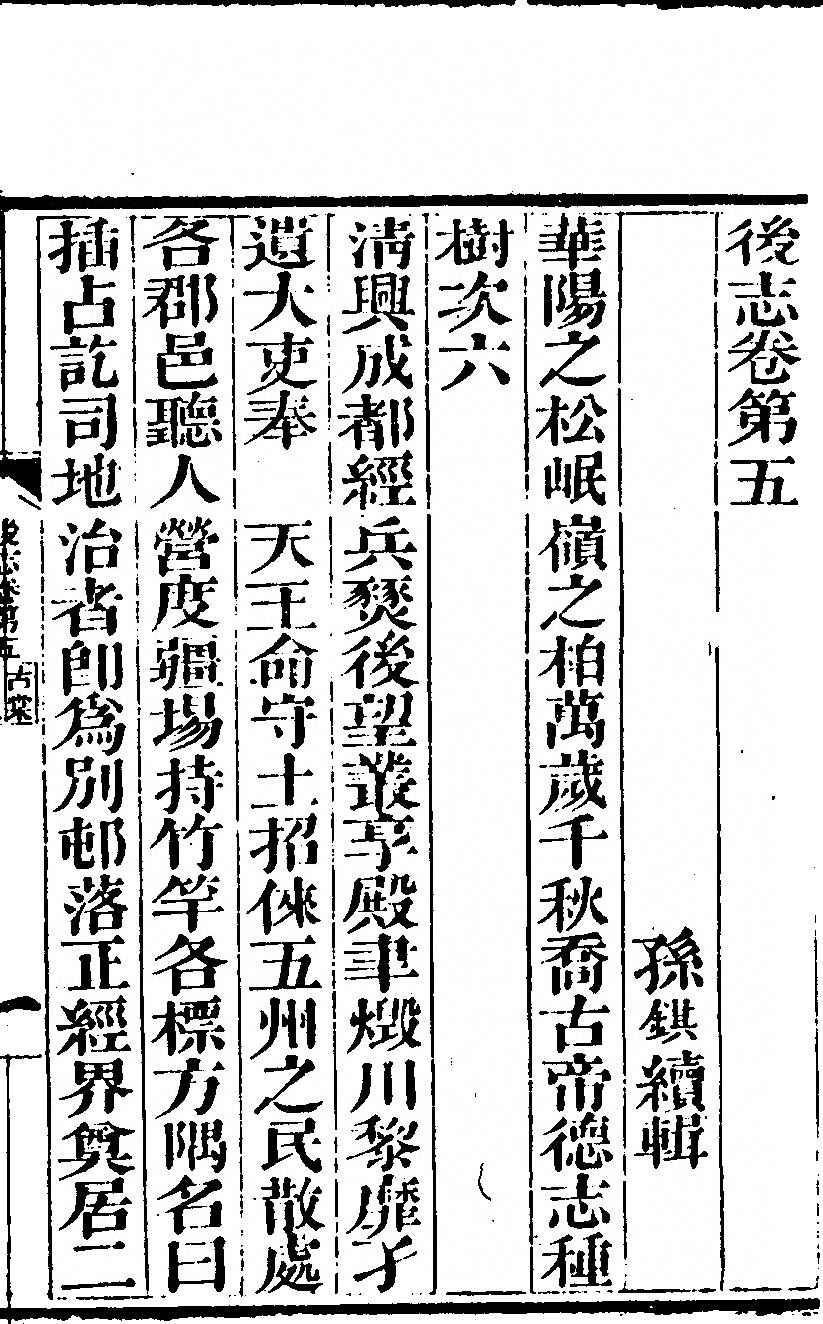 後志卷第五
孫錤續輯
華陽之松岷嶺之柏萬歲千秋喬古帝德志種
樹次六
淸興成都經兵燹後望叢享殿聿燬川黎靡孑
遺大吏奉 天王命守土招倈五州之民散處
各郡邑聽人營度疆埸持竹竿各標方隅名曰
插占訖司地治者卽爲別邨落正經界奠居二
後志卷第五
古棠
一